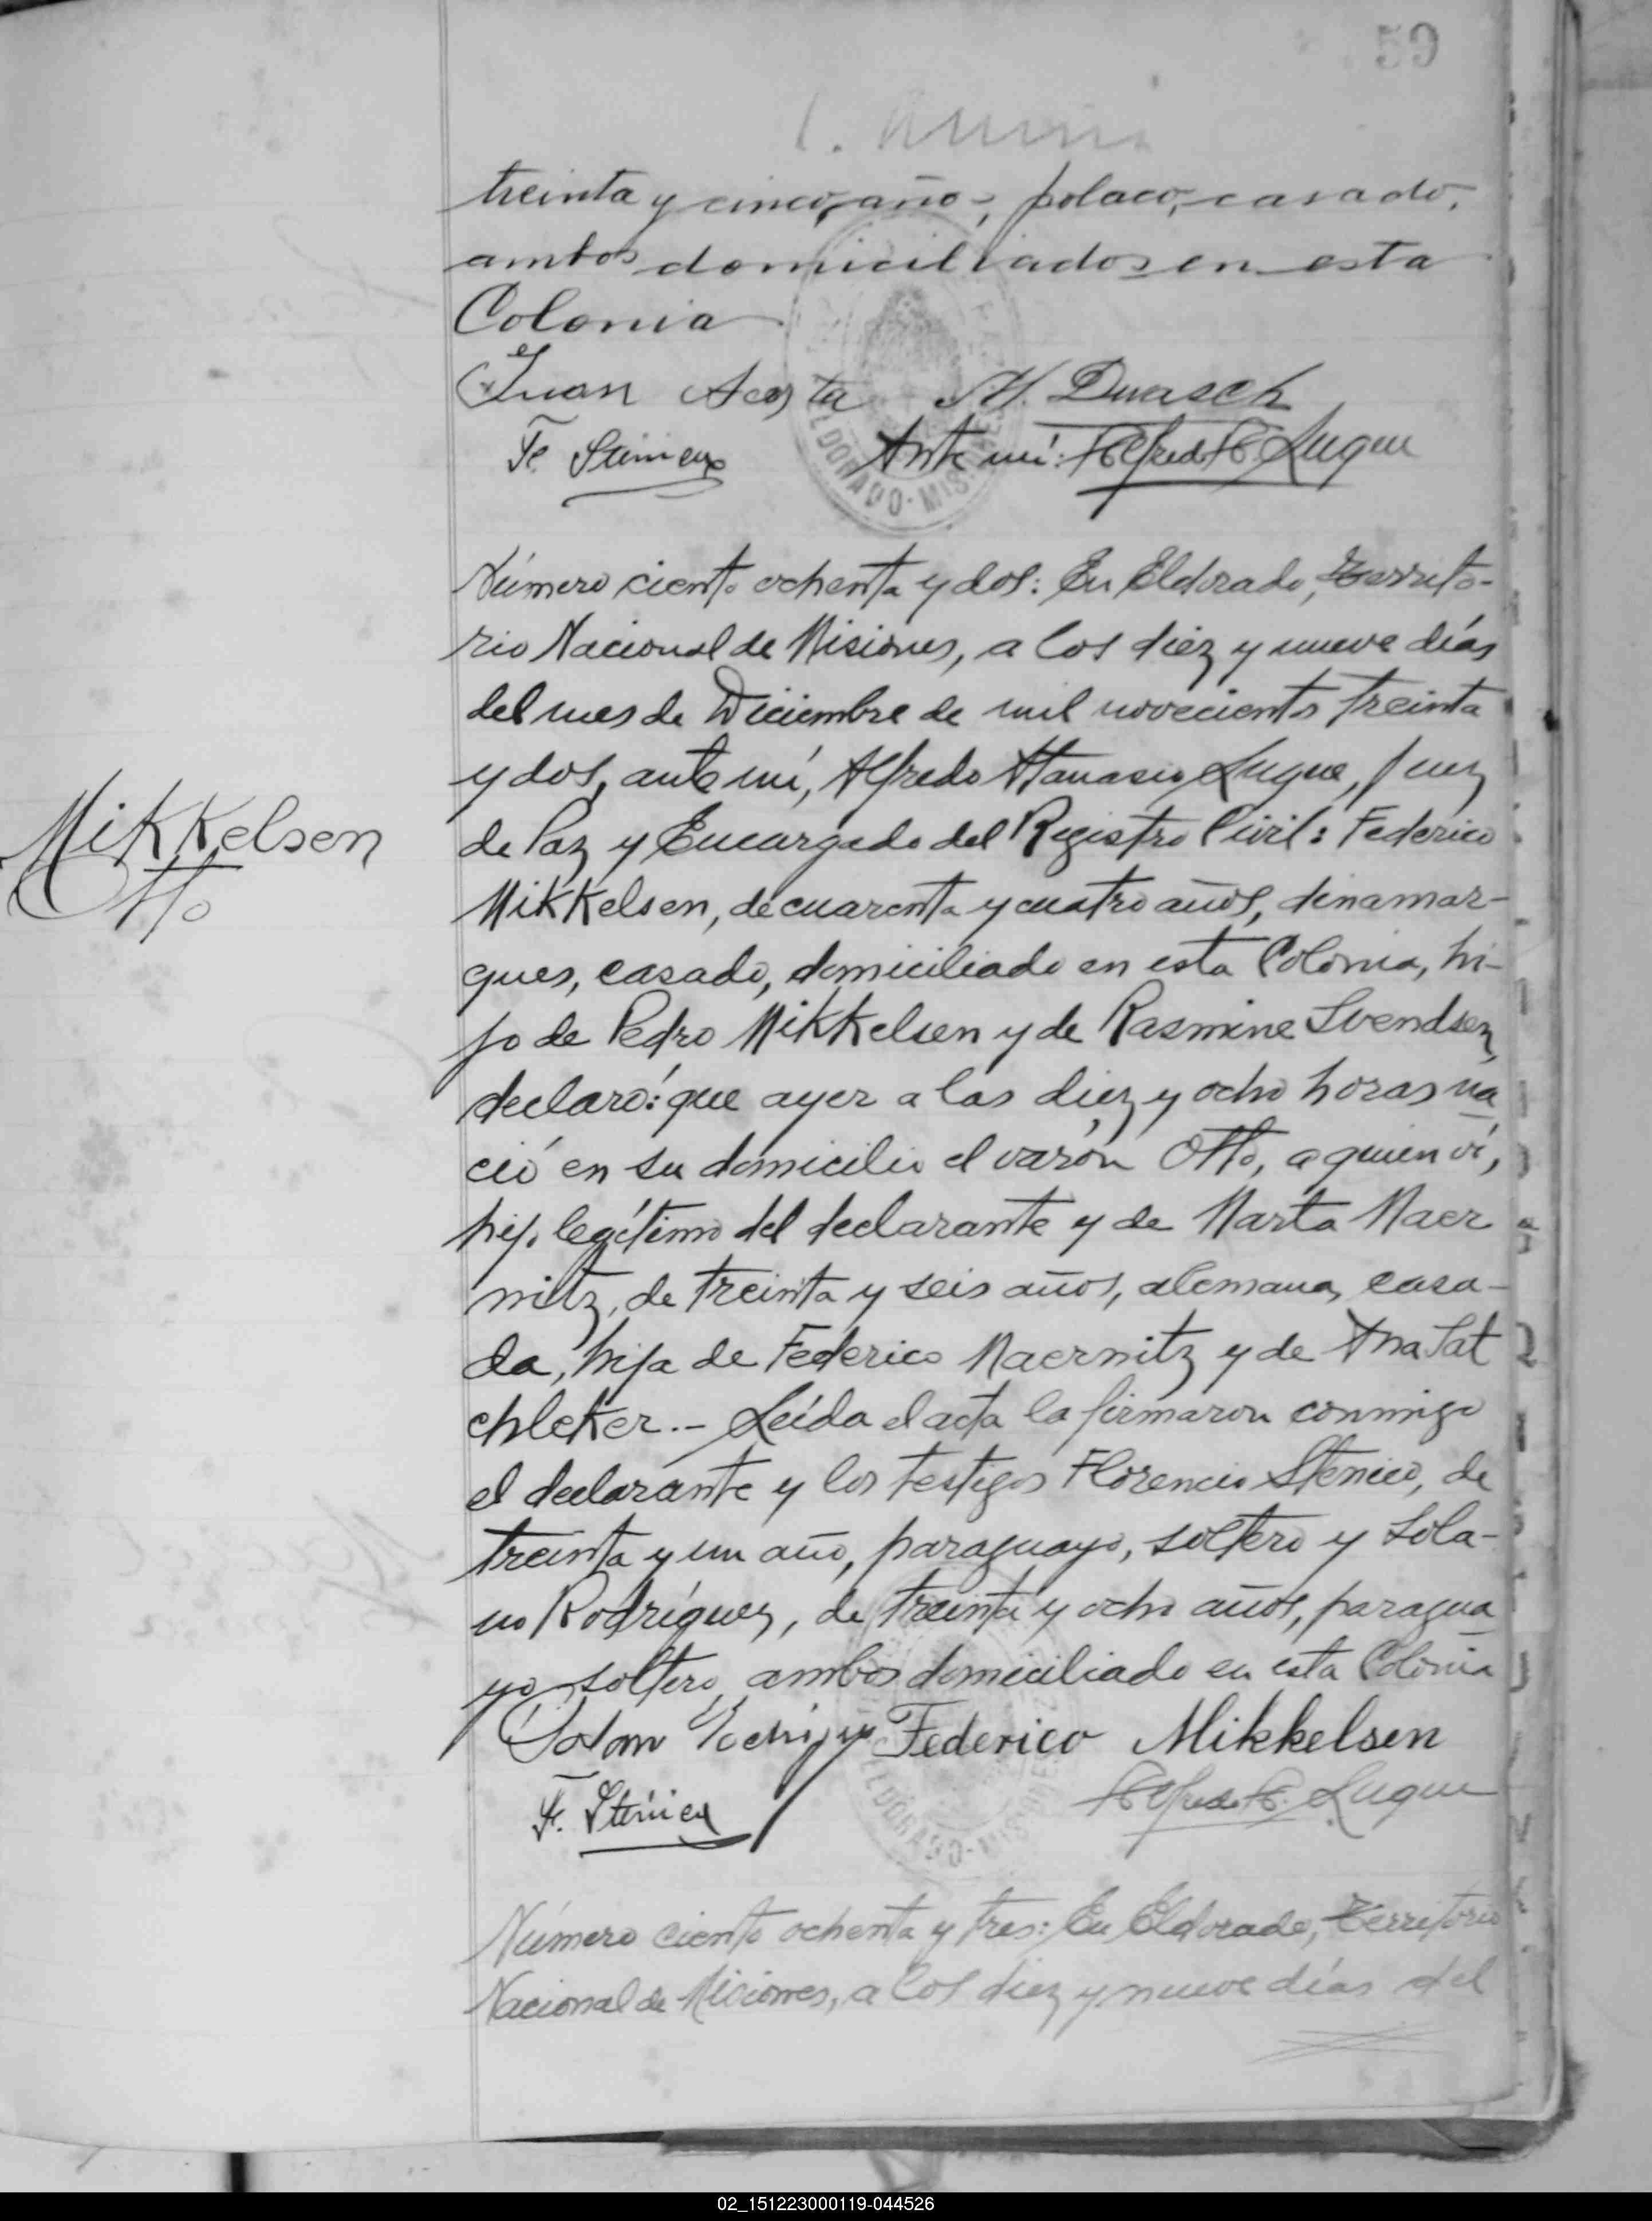 59
treinta y cinco años, polaco, casado,
ambos domiciliados en esta
Colonia
Juan Acosta M. Duasek
Ante mí: Alfredo A. Luque
ELDORADO - MISIONES
Número ciento ochenta y dos: En Eldorado, Territo-
rio Nacional de Misiones, a los diez y nueve días
del mes de Diciembre de mil novecientos treinta
y dos, ante mí, Alfredo Atanasio Luque, Juez
de Paz y Encargado del Registro Civil: Federico
Mikkelsen
Otto
Mikkelsen, de cuarenta y cuatro años, dinamar-
ques, casado, domiciliado en esta Colonia, hi-
jo de Pedro Mikkelsen y de Rasmine Svendsen,
declaró: que ayer a las diez y ocho horas na
ció en su domicilio el varón Otto, a quien ví,
hijo legítimo del declarante y de Marta Maer
nitz, de treinta y seis años, alemana, casa-
da, hija de Federico Maernitz y de Ana Sat
chleker.- Leída el acta la firmaron conmigo
el declarante y los testigos Florencio Stenico, de
treinta y un año, paraguayo, soltero y Sola-
no Rodríguez, de treinta y ocho años, paragua
yo soltero, ambos domiciliado en esta Colonia
Federico Mikkelsen
F. Stenico Alfredo A. Luque
ELDORADO - MISIONES
Número ciento ochenta y tres: En Eldorado, Territorio
Nacional de Misiones, a los diez y nueve días del
02_151223000119-044526